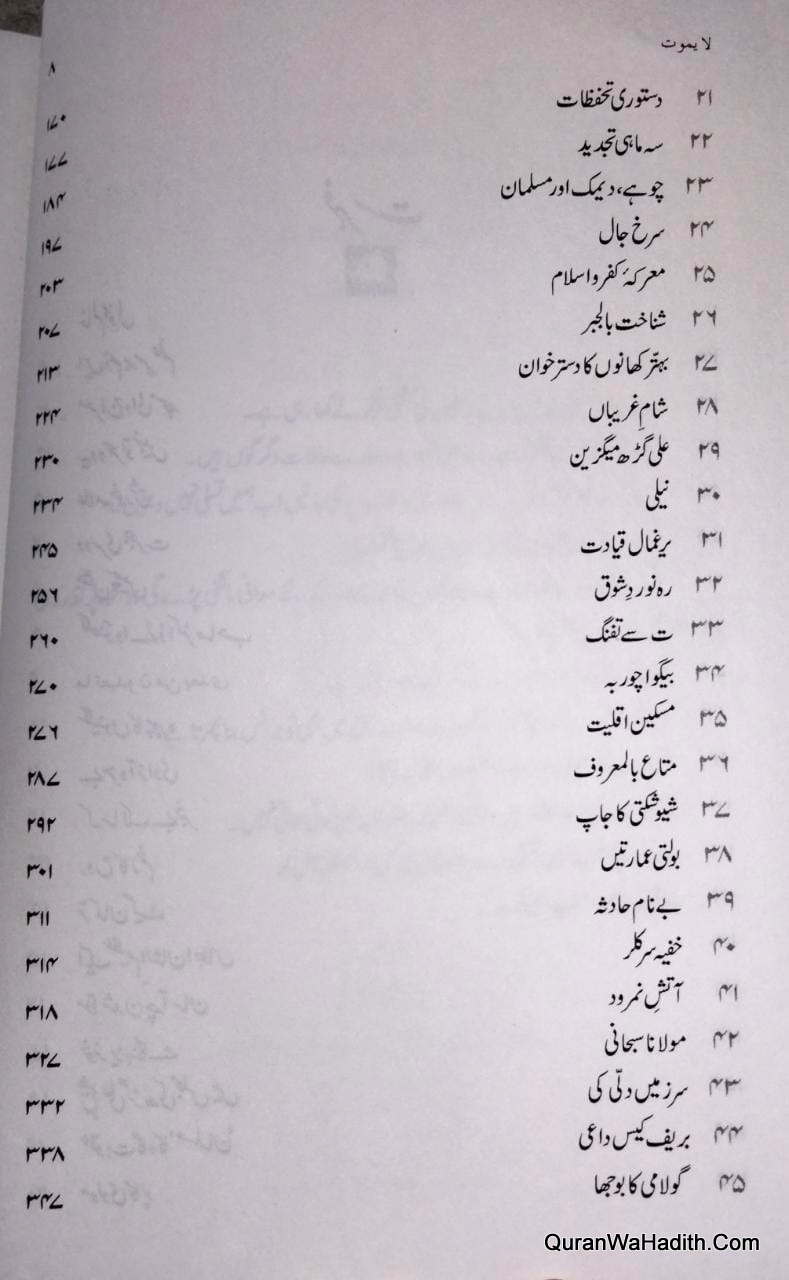 لا یموت
۸
۲۱ دستوری تحفظات ۱۷۰
۲۲ سہ ماہی تجدید ۱۷۷
۲۳ چوہے، دیمک اور مسلمان ۱۸۴
۲۴ سرخ جال ۱۹۷
۲۵ معرکۂ کفر و اسلام ۲۰۳
۲۶ شناخت بالجبر ۲۰۷
۲۷ بہتّر کھانوں کا دستر خوان ۲۱۳
۲۸ شامِ غریباں ۲۲۴
۲۹ علی گڑھ میگزین ۲۳۰
۳۰ نیلی ۲۳۴
۳۱ یرغمال قیادت ۲۴۵
۳۲ رہ نوردِ شوق ۲۵۶
۳۳ ت سے تفنگ ۲۶۰
۳۴ بیگوا چور بہ ۲۷۰
۳۵ مسکین اقلیت ۲۷۶
۳۶ متاع بالمعروف ۲۸۷
۳۷ شیو شکتی کا جاپ ۲۹۲
۳۸ بولتی عمارتیں ۳۰۱
۳۹ بے نام حادثہ ۳۱۱
۴۰ خفیہ سرکلر ۳۱۴
۴۱ آتشِ نمرود ۳۱۸
۴۲ مولانا سبحانی ۳۲۷
۴۳ سرزمیں دلّی کی ۳۳۲
۴۴ بریف کیس داعی ۳۳۸
۴۵ گولامی کا بوجھا ۳۴۷
QuranWaHadith.Com